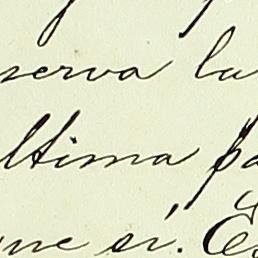 serva la
ltima pa
ne sí. E